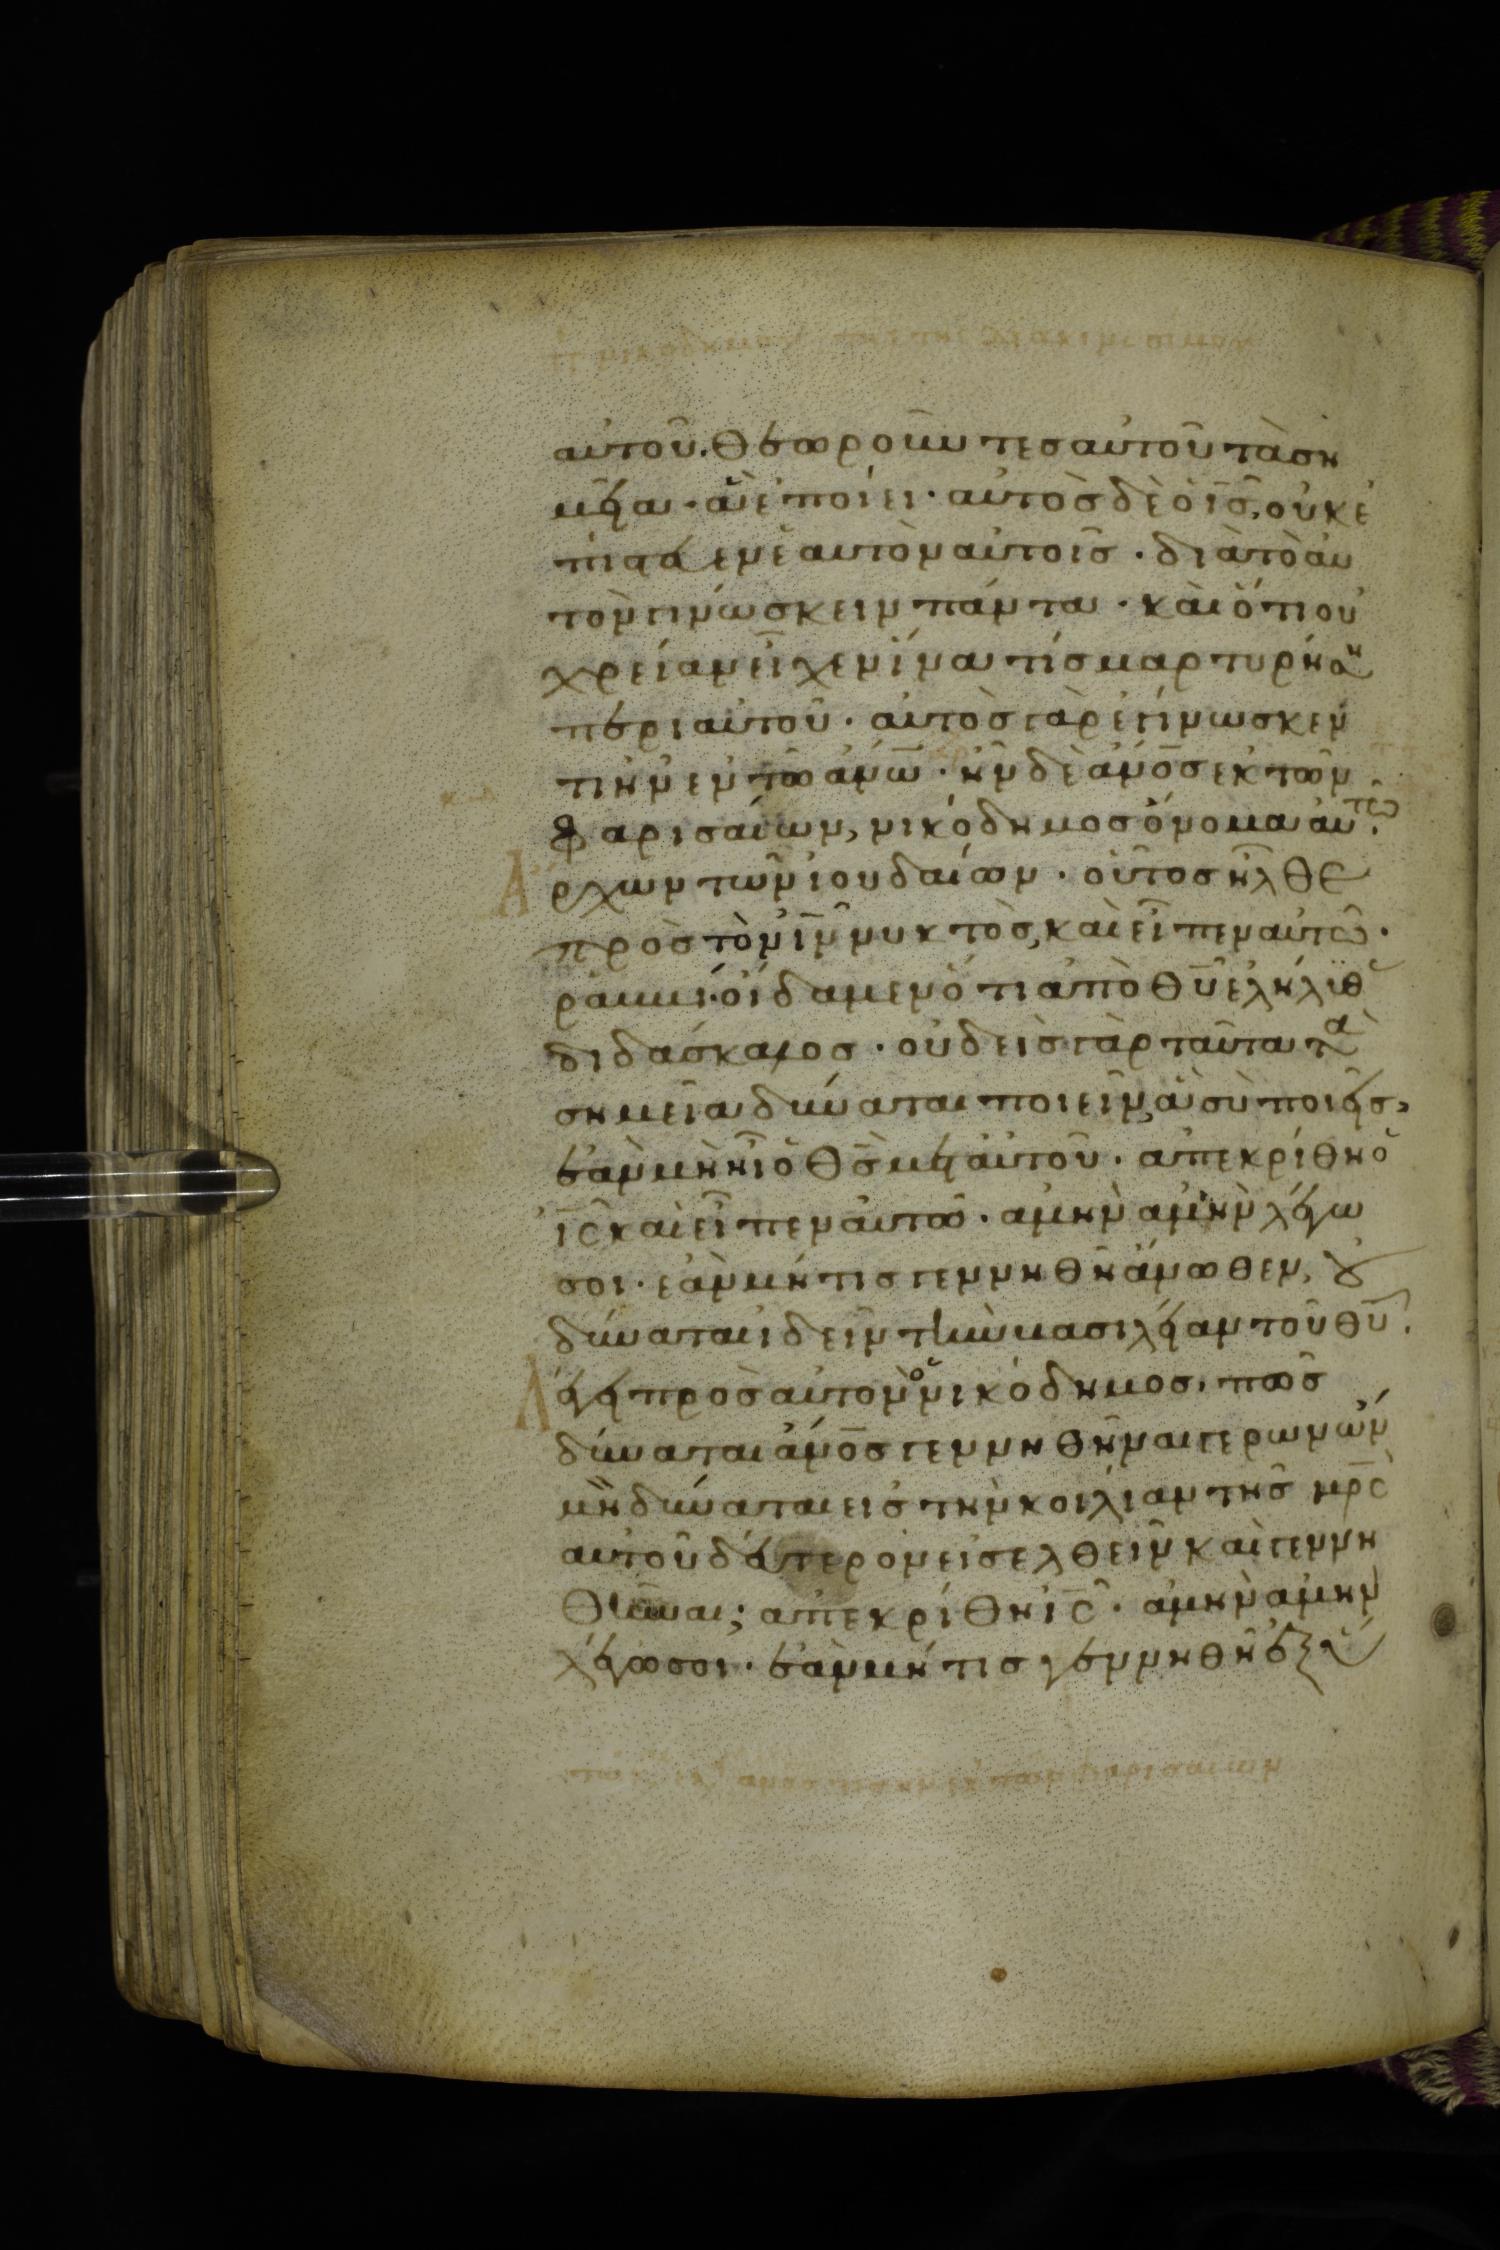 αὐτοῦ. θεωροῦντες αὐτοῦ τὰ ση
μεῖα · ἃ ἐποίει · αὐτὸς δὲ ὁ ις, οὐκ ἐ
πίστευεν ἑαυτὸν αὐτοῖς · διὰ τὸ αὐ
τὸν γινώσκειν πάντα · καὶ ὅτι οὐ
χρείαν εἶχεν ἵνα τίς μαρτυρήση
περι αὐτοῦ · αὐτὸς γὰρ ἐγίνωσκεν
τι ἦν ἐν τῶ ἀνω · ἦν δὲ ἀνος ἐκ τῶν
φαρισαίων, νικόδημος ὄνομα αὐτῶ.
Ἄρχων τῶν ἰουδαίων · οὗτος ἦλθε
πρὸς τὸν ιν νυκτὸς, καὶ εἶπεν αὐτῶ ·
ραββί · οἴδαμεν ὅτι ἀπὸ θυ ἐλήλυθ
διδάσκαλος · οὐδεὶς γὰρ ταῦτα τὰ
σημεῖα δύναται ποιεῖν, ἃ σὺ ποιεῖς,
ἐὰν μὴ ἦ ὁ θς μετ αὐτοῦ · ἀπεκρίθη ὁ
ις καὶ εἶπεν αὐτῶ · ἀμὴν ἀμὴν λέγω
σοι · ἐὰν μή τις γεννηθῆ ἄνωθεν, οὐ
δύναται ἰδεῖν τὴν βασιλείαν τοῦ θυ.
Λέγει πρὸς αὐτὸν ὁ νικόδημος, πῶς
δύναται ἀνος γεννηθῆναι γέρων ὢν
μὴ δύναται εἰς τὴν κοιλίαν τῆς μρς
αὐτοῦ δεύτερον εἰσελθεῖν καὶ γεννη
θῆναι; ἀπεκρίθη ις · ἀμὴν ἀμὴν
λέγω σοι · ἐὰν μή τις γεννηθῆ ἐξ